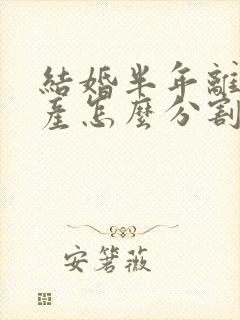 結婚半年離
産怎麼分割
安箬薇